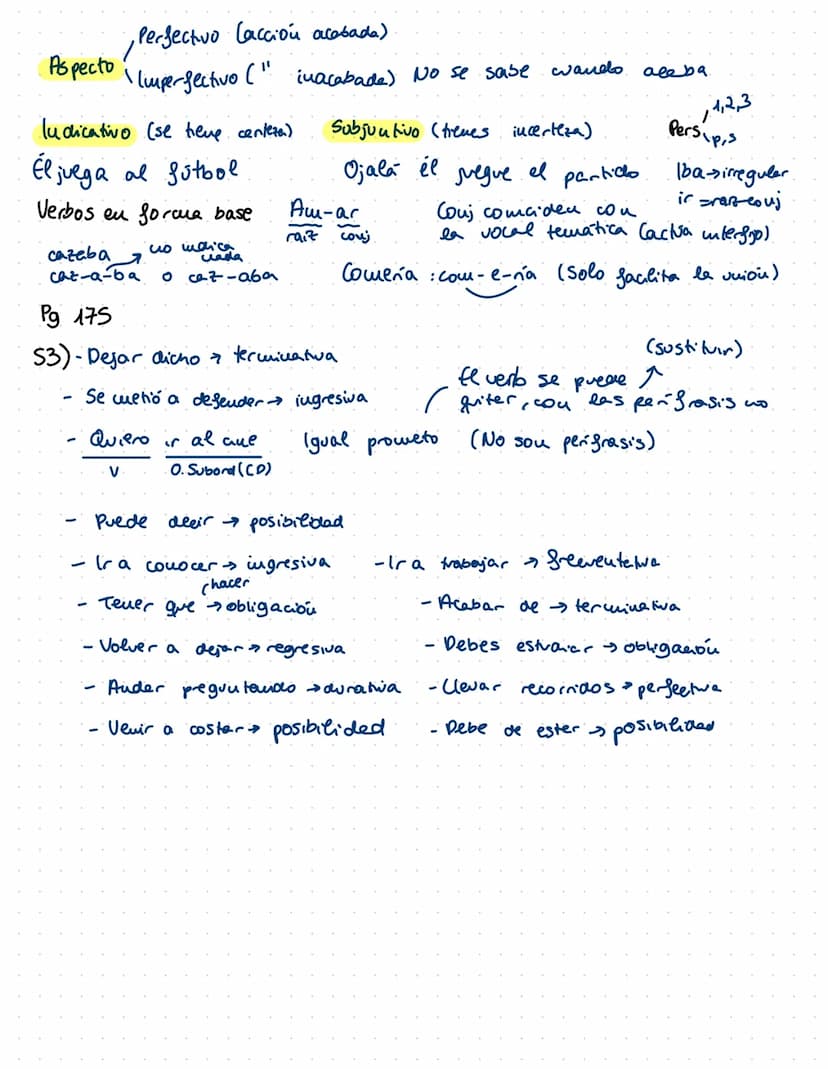 Perfectivo (acción acabada)
Aspecto
Imperfectivo (" inacabada) No se sabe cuando acaba
Indicativo (se tiene certeza) Subjuntivo (tienes incerteza) Pers 1,2,3 p,s
Él juega al fútbol Ojalá él juegue el partido Iba→irregular
ir = raz-conj
Verbos en forma base Am-ar Conj comciden con
raíz conj la vocal temática (actúa interfijo)
cazaba → no indica nada
caz-a-ba o caz-aba Comería : com-e-ría (Solo facilita la unión)
Pg 175
53)- Dejar dicho → terminativa (sustituir)
- Se metió a defender→ ingresiva El verb se puede
quitar, con las perífrasis no
- Quiero ir al cine Igual prometo (No son perífrasis)
V O. Subord(CD)
- Puede decir → posibilidad
- Ir a conocer→ ingresiva - Ir a trabajar →
hacer
- Tener que → obligación - Acabar de → terminativa
- Volver a dejar→ regresiva - Debes → obligación
- Andar preguntando →durativa - Llevar recorridos→ perfectiva
- Venir a costar→ posibilidad - Debe de estar → posibilidad